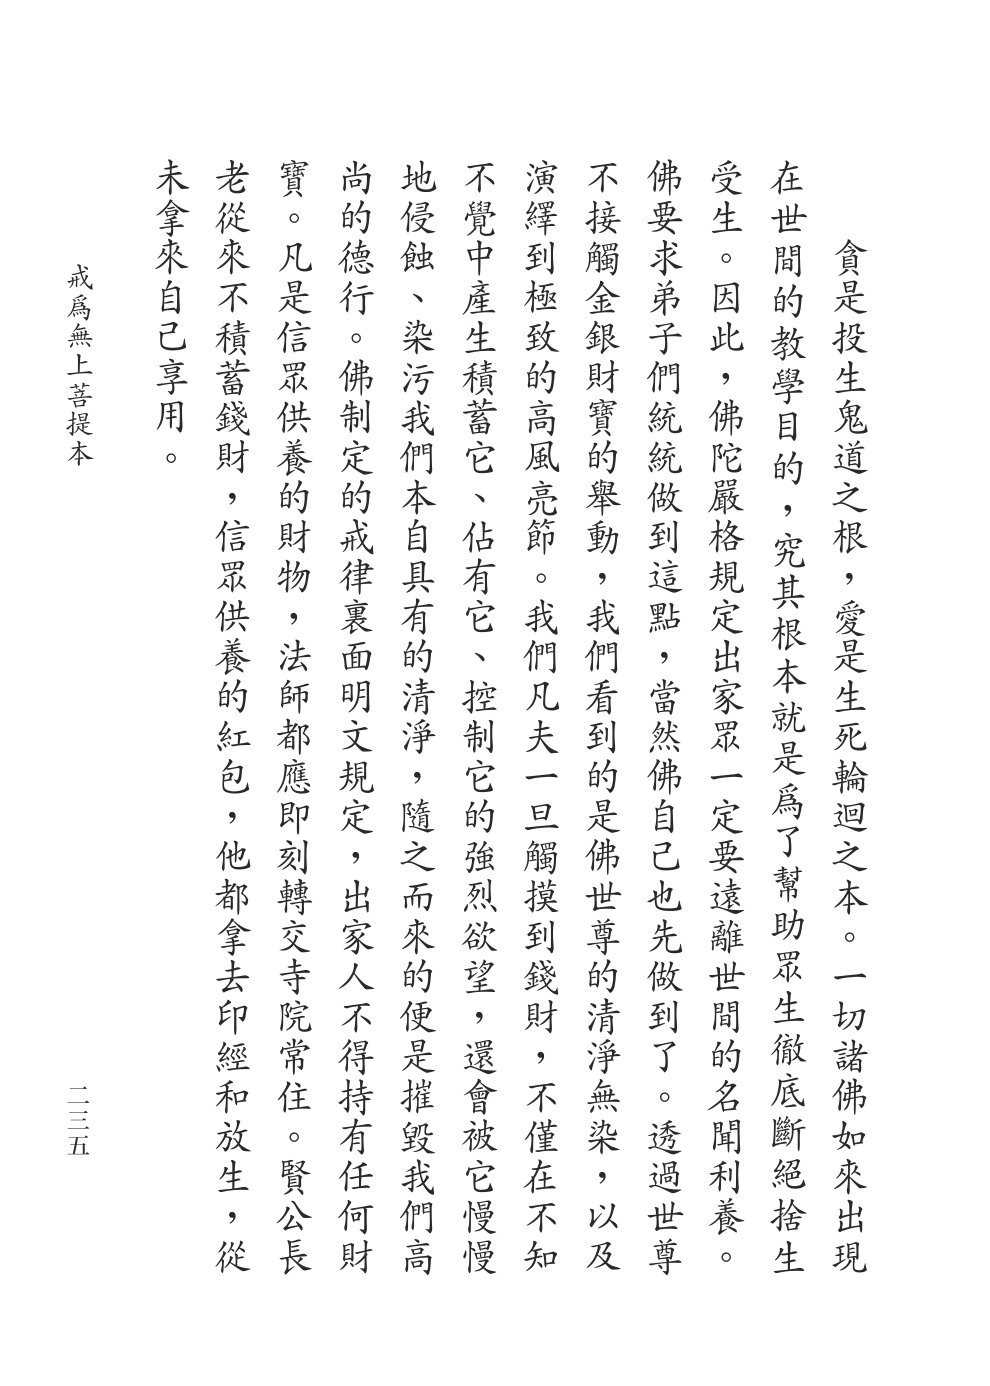 貪是投生鬼道之根，愛是生死輪迴之本。一切諸佛如來出現
在世間的教學目的，究其根本就是爲了幫助眾生徹底斷絕捨生
受生。因此，佛陀嚴格規定出家眾一定要遠離世間的名聞利養。
佛要求弟子們統統做到這點，當然佛自己也先做到了。透過世尊
不接觸金銀財寶的舉動，我們看到的是佛世尊的清淨無染，以及
演繹到極致的高風亮節。我們凡夫一旦觸摸到錢財，不僅在不知
不覺中產生積蓄它、佔有它、控制它的強烈欲望，還會被它慢慢
地侵蝕、染污我們本自具有的清淨，隨之而來的便是摧毀我們高
尚的德行。佛制定的戒律裏面明文規定，出家人不得持有任何財
寶。凡是信眾供養的財物，法師都應即刻轉交寺院常住。賢公長
老從來不積蓄錢財，信眾供養的紅包，他都拿去印經和放生，從
未拿來自己享用。
戒爲無上菩提本
二三五